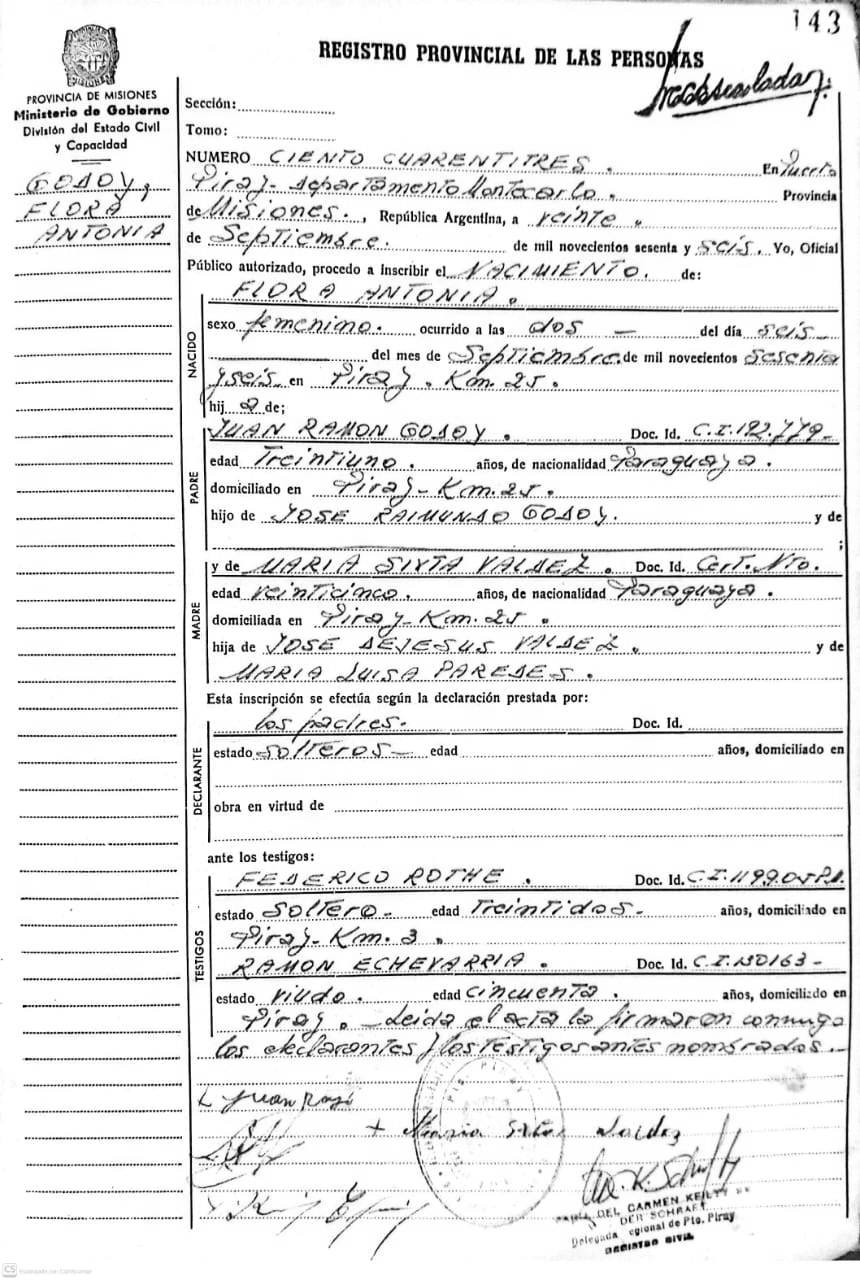 143
REGISTRO PROVINCIAL DE LAS PERSONAS
PROVINCIA DE MISIONES
Ministerio de Gobierno
División del Estado Civil
y Capacidad
GODOY,
FLORA
ANTONIA
Sección:
Tomo:
NUMERO CIENTO CUARENTITRES. En Puerto
Piray- departamento Montecarlo. Provincia
de Misiones., República Argentina, a veinte.
de Septiembre. de mil novecientos sesenta y seis. Yo, Oficial
Público autorizado, procedo a inscribir el NACIMIENTO. de:
NACIDO
FLORA ANTONIA.
sexo femenino. ocurrido a las dos — del día seis—
del mes de Septiembre. de mil novecientos sesenta
y seis en Piray. Km. 25.
hij a de;
PADRE
JUAN RAMON GODOY. Doc. Id. C.I. 192.779-
edad Treintiuno. años, de nacionalidad Paraguaya.
domiciliado en Piray- Km. 25.
hijo de JOSE RAIMUNDO GODOY. y de
;
MADRE
y de MARIA SIXTA VALDEZ. Doc. Id. Cert. Nto.
edad veinticinco. años, de nacionalidad Paraguaya.
domiciliada en Piray- Km. 25.
hija de JOSE DEJESUS VALDEZ. y de
MARIA LUISA PAREDES.
DECLARANTE
Esta inscripción se efectúa según la declaración prestada por:
los padres. Doc. Id.
estado solteros— edad años, domiciliado en
obra en virtud de
TESTIGOS
ante los testigos:
FEDERICO ROTHE. Doc. Id. C.I.
estado soltero- edad treintidos- años, domiciliado en
Piray- Km. 3.
RAMON ECHEVARRIA. Doc. Id. C.I. 130163-
estado viudo. edad cincuenta. años, domiciliado en
Piray. — Leida el acta la firmaron conmigo
los declarantes y los testigos antes nombrados.—
Juan
+ Maria Sixta Valdez
PTO. PIRAY
DEL CARMEN
DER SCHRAFT
Delegada Regional de Pto. Piray
REGISTRO CIVIL
CS